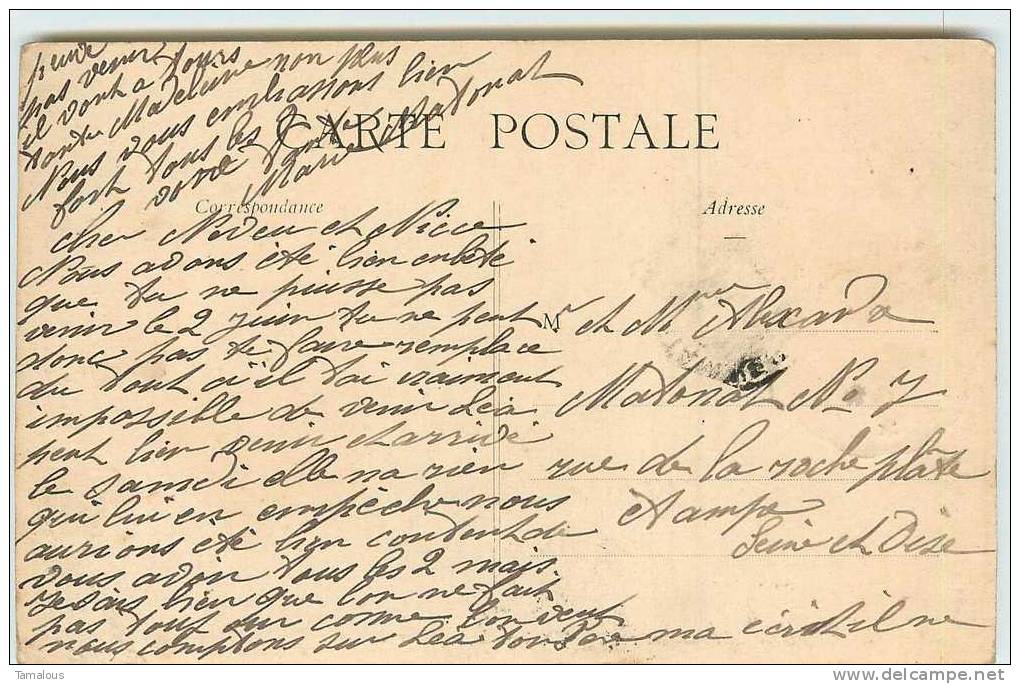 CARTE POSTALE
Correspondance
Adresse
cher Neveu et Niece
Nous avons été bien enbeté
que tu ne puisse pas
venir le 2 juin tu ne peut
donc pas te faire remplace
du tout ci il tai vraiment
impossible de venir Léa
peut bien venir et arrivé
le samedi elle na rien
qui lui en empéche nous
aurions été bien contentde
vous avoir tous les 2 mais
je sais bien que lon ne fait
pas tout sur comme lon veut
nous comptons sur Léa ma écrit il ne
peuve
pas venir
il vont a Tours
Madeleine non plus
Nous vous embrassons bien
fort tous les 2
votre Tante
Marie Matonat
Mr et Mme Alexandre
Matonat No 7
rue de la roche plate
etampe
Seine et Oise
Tamalous
www.delcampe.net